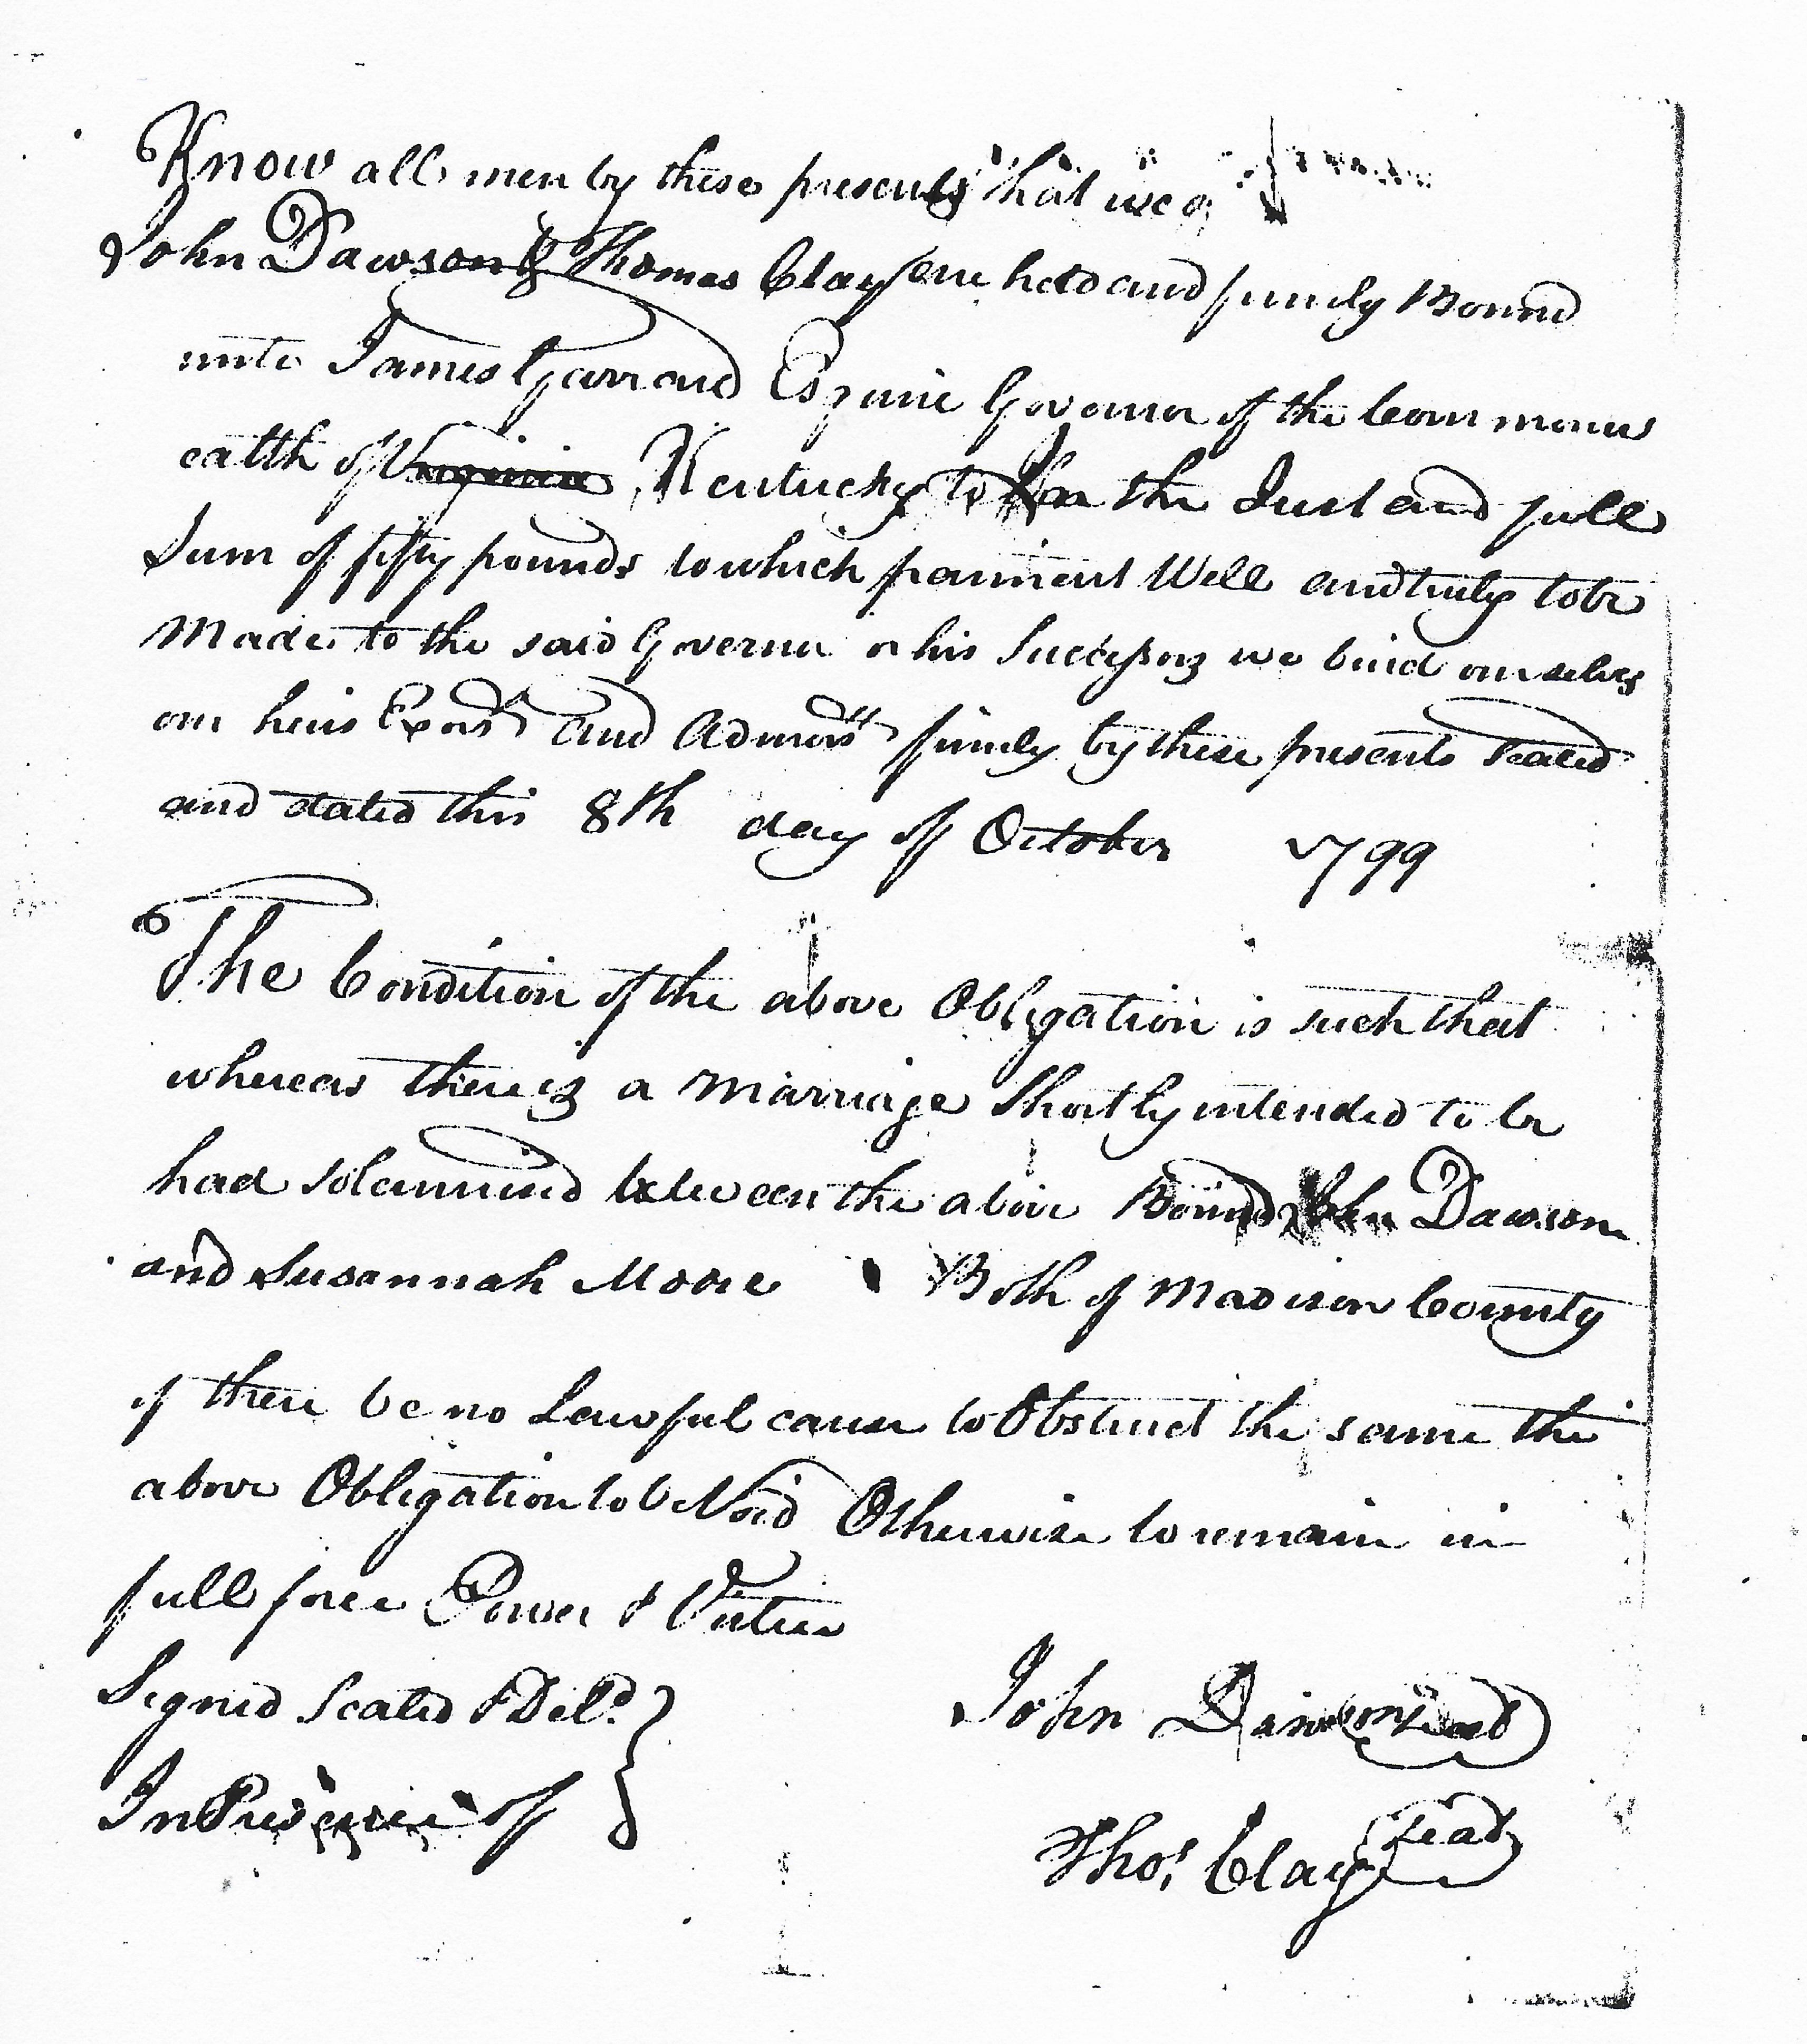 Know all men by these presents that we
John Dawson & Thomas Clay are held and firmly Bound
unto James Garrard Esquire Governor of the Commonw
ealth of Virginia Kentucky the Just and full
Sum of fifty pounds to which paiment Well and truly to be
Made to the said Governor or his Successors we bind ourselves
our heirs Exors and Admors firmly by these presents sealed
and dated this 8th day of October 1799
The Condition of the above Obligation is such that
whereas there is a Marriage Shortly intended to be
had solemnized between the above Bound John Dawson
and Susannah Moore Both of Madison County
if there be no Lawful cause to Obstruct the same the
above Obligation to be Void Otherwise to remain in
full force Power & Virtue
Signed Sealed & Deld
In Presence of
John Dawson Seal
Thos Clay Seal